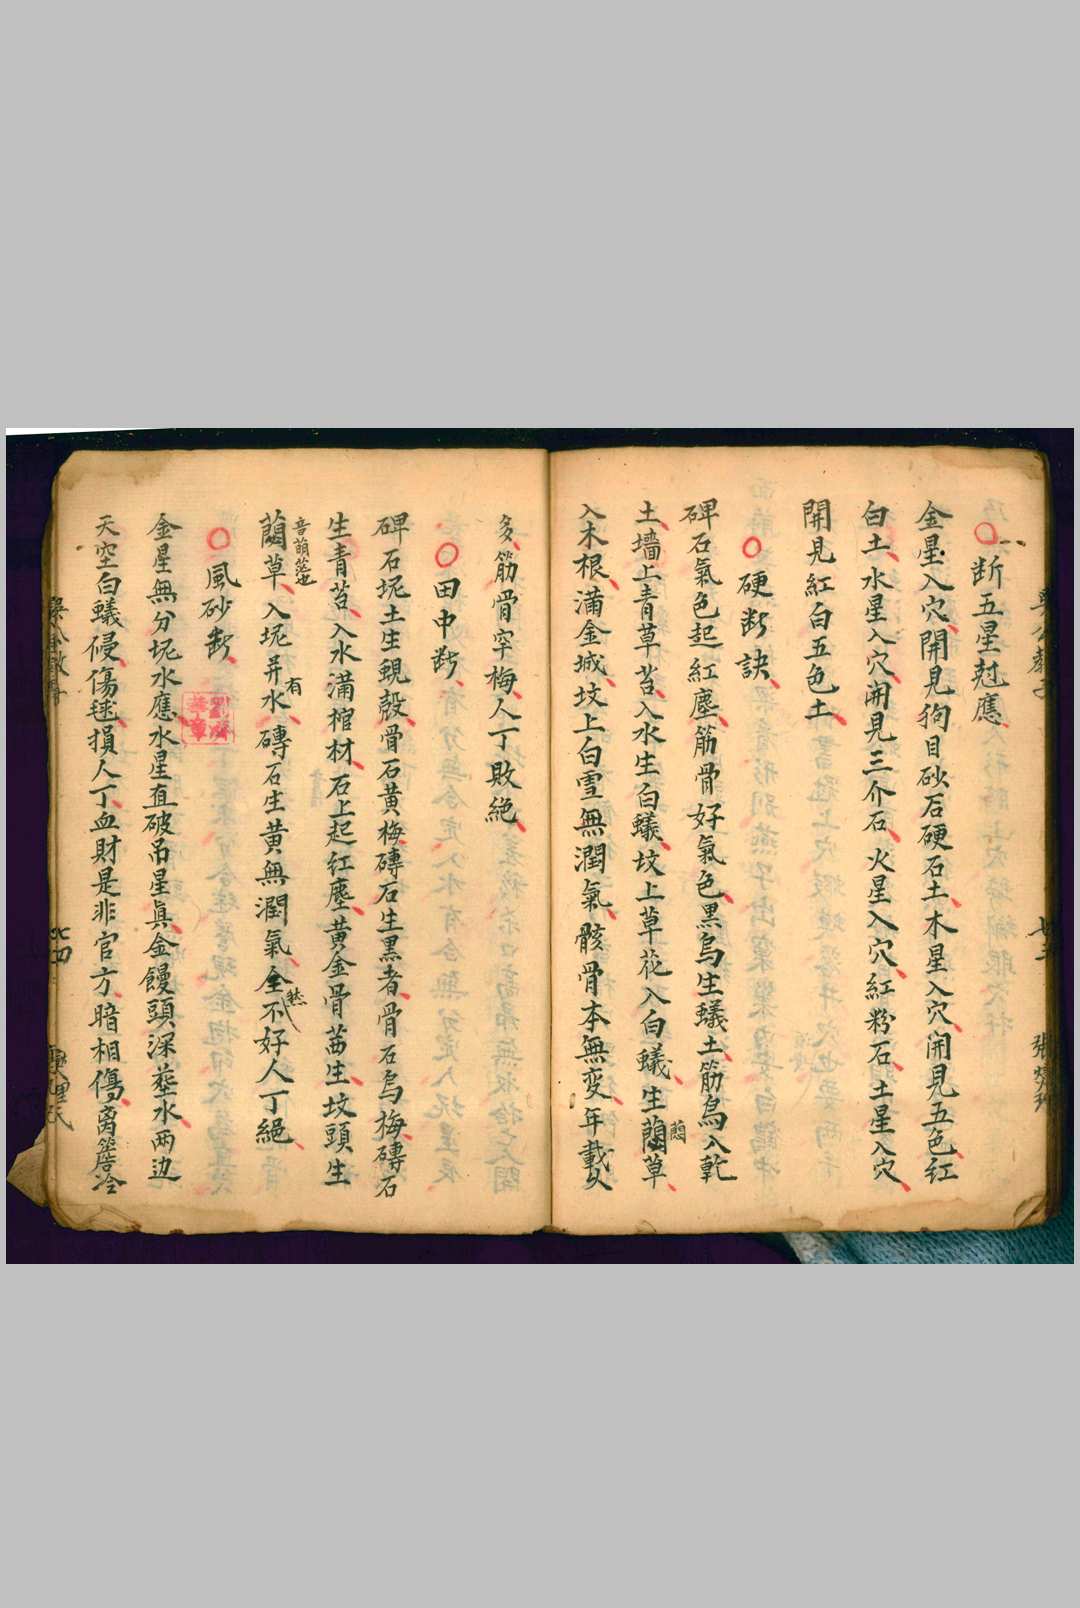 一断五星尅應
金星入穴開見狗目砂石硬石土木星入穴開見五色紅
白土水星入穴開見三介石火星入穴紅粉石土星入穴
開見紅白五色土
硬断訣
碑石氣色起紅塵筋骨好氣色黑烏生蟻土筋烏入乾
土墻上青草苔入水生白蟻坟上草花入白蟻生藺草
入木根滿金城坟上白雪無潤氣骸骨本無変年載久
多筋骨穿梅人丁敗絕
田中断
碑石坭土生蜆殼骨石黄梅磚石生黑者骨石烏梅磚石
生青苔入水滿棺材石上起紅塵黄金骨茜生坟頭生
藺草入坭并有水磚石生黄無潤氣全然不好人丁絕
風砂断
金星無分坭水應水星直破吊星眞金饅頭深葬水两边
天空白蟻侵傷毬損人丁血財是非官方暗相傷离簷冷
廿四